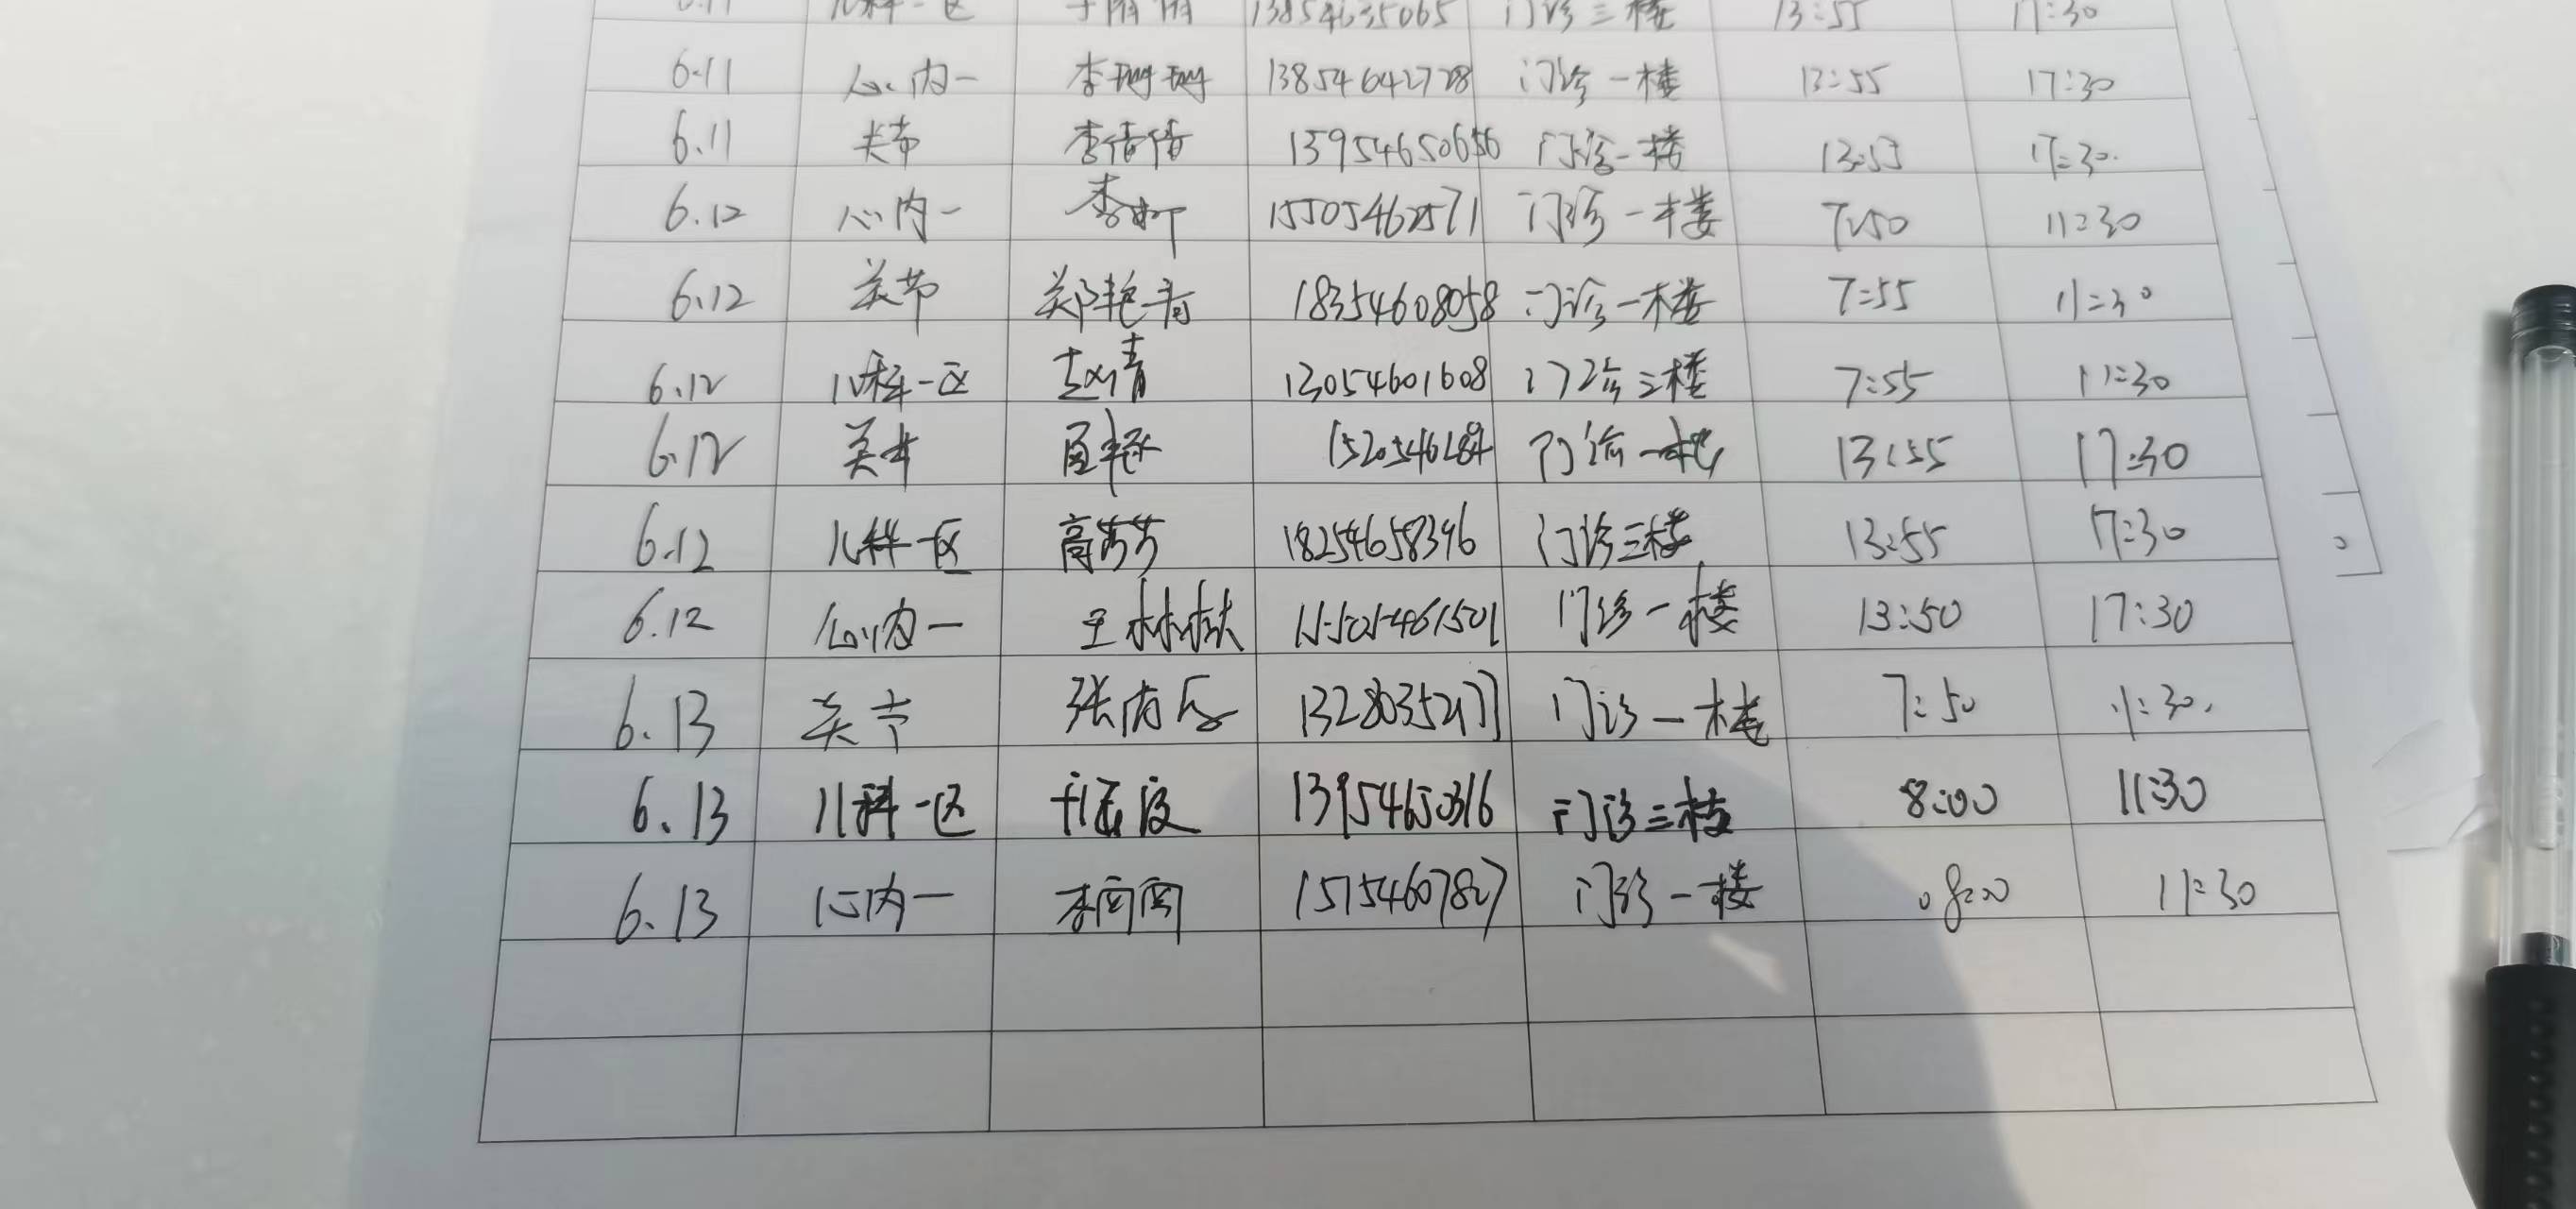 6.11 儿科一区 13854635065 门诊三楼 13:55 17:30
6.11 心内一 李珊珊 13854642728 门诊一楼 13:55 17:30
6.11 关节 李倩倩 13954650656 门诊一楼 13:53 17:30.
6.12 心内一 李 15505462571 门诊一楼 7:50 11:30
6.12 关节 郑艳青 18354608058 门诊一楼 7:55 11:30
6.12 儿科一区 赵倩 13054601608 门诊三楼 7:55 11:30
6.12 关节 门诊一楼 13:55 17:30
6.12 儿科一区 高芳芳 18254658396 门诊三楼 13:55 17:30
6.12 心内一 王林林 15505461501 门诊一楼 13:50 17:30
6.13 关节 张 13280352177 门诊一楼 7:50 11:30.
6.13 儿科一区 13954650316 门诊三楼 8:00 11:30
6.13 心内一 李阁阁 15154607827 门诊一楼 08:00 11:30